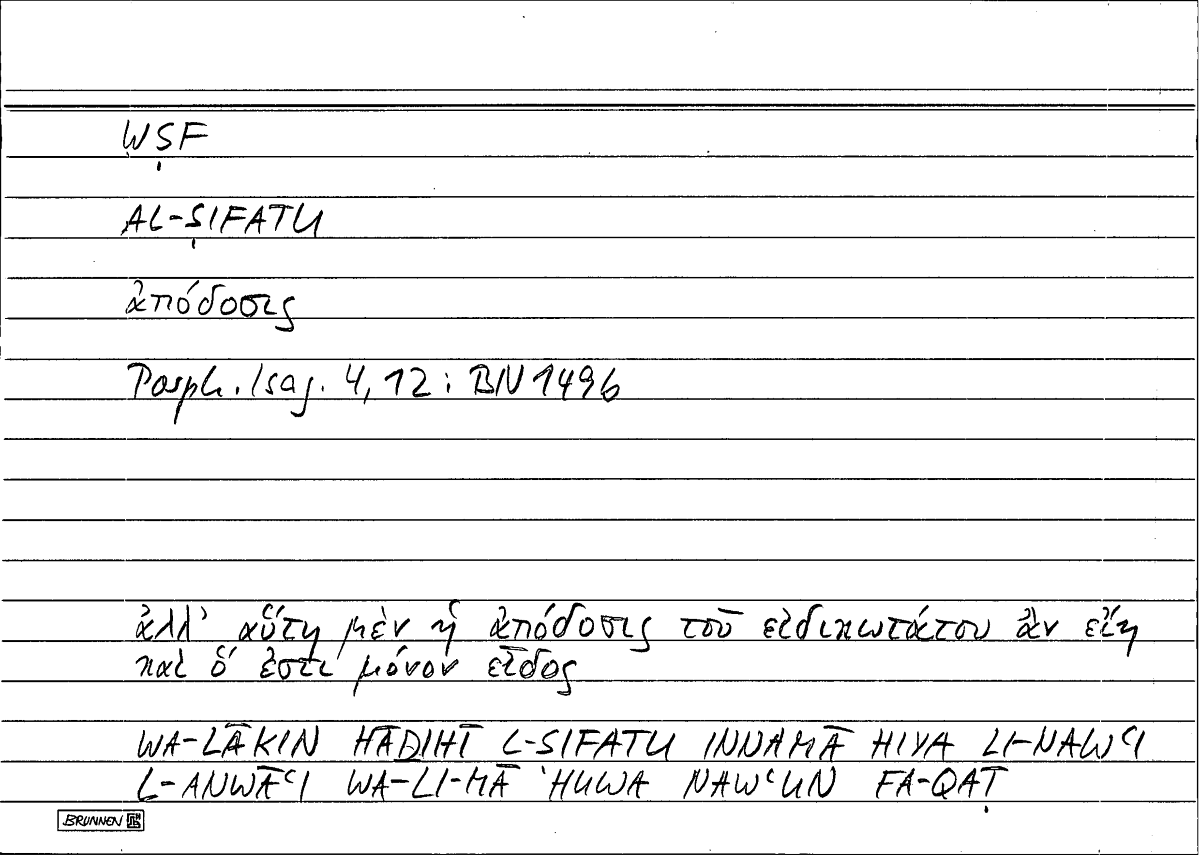 WṢF
AL-ṢIFATU
ἀπόδοσις
Porph. Isag. 4, 12 : BN 1496
ἀλλ' αὕτη μὲν ἡ ἀπόδοσις τοῦ εἰδικωτάτου ἂν εἴη
καὶ ὅ ἐστι μόνον εἶδος
WA-LĀKIN HĀḎIHĪ L-SIFATU INNAMĀ HIYA LI-NAWʿI
L-ANWĀʿI WA-LI-MĀ HUWA NAWʿUN FA-QAṬ
BRUNNEN